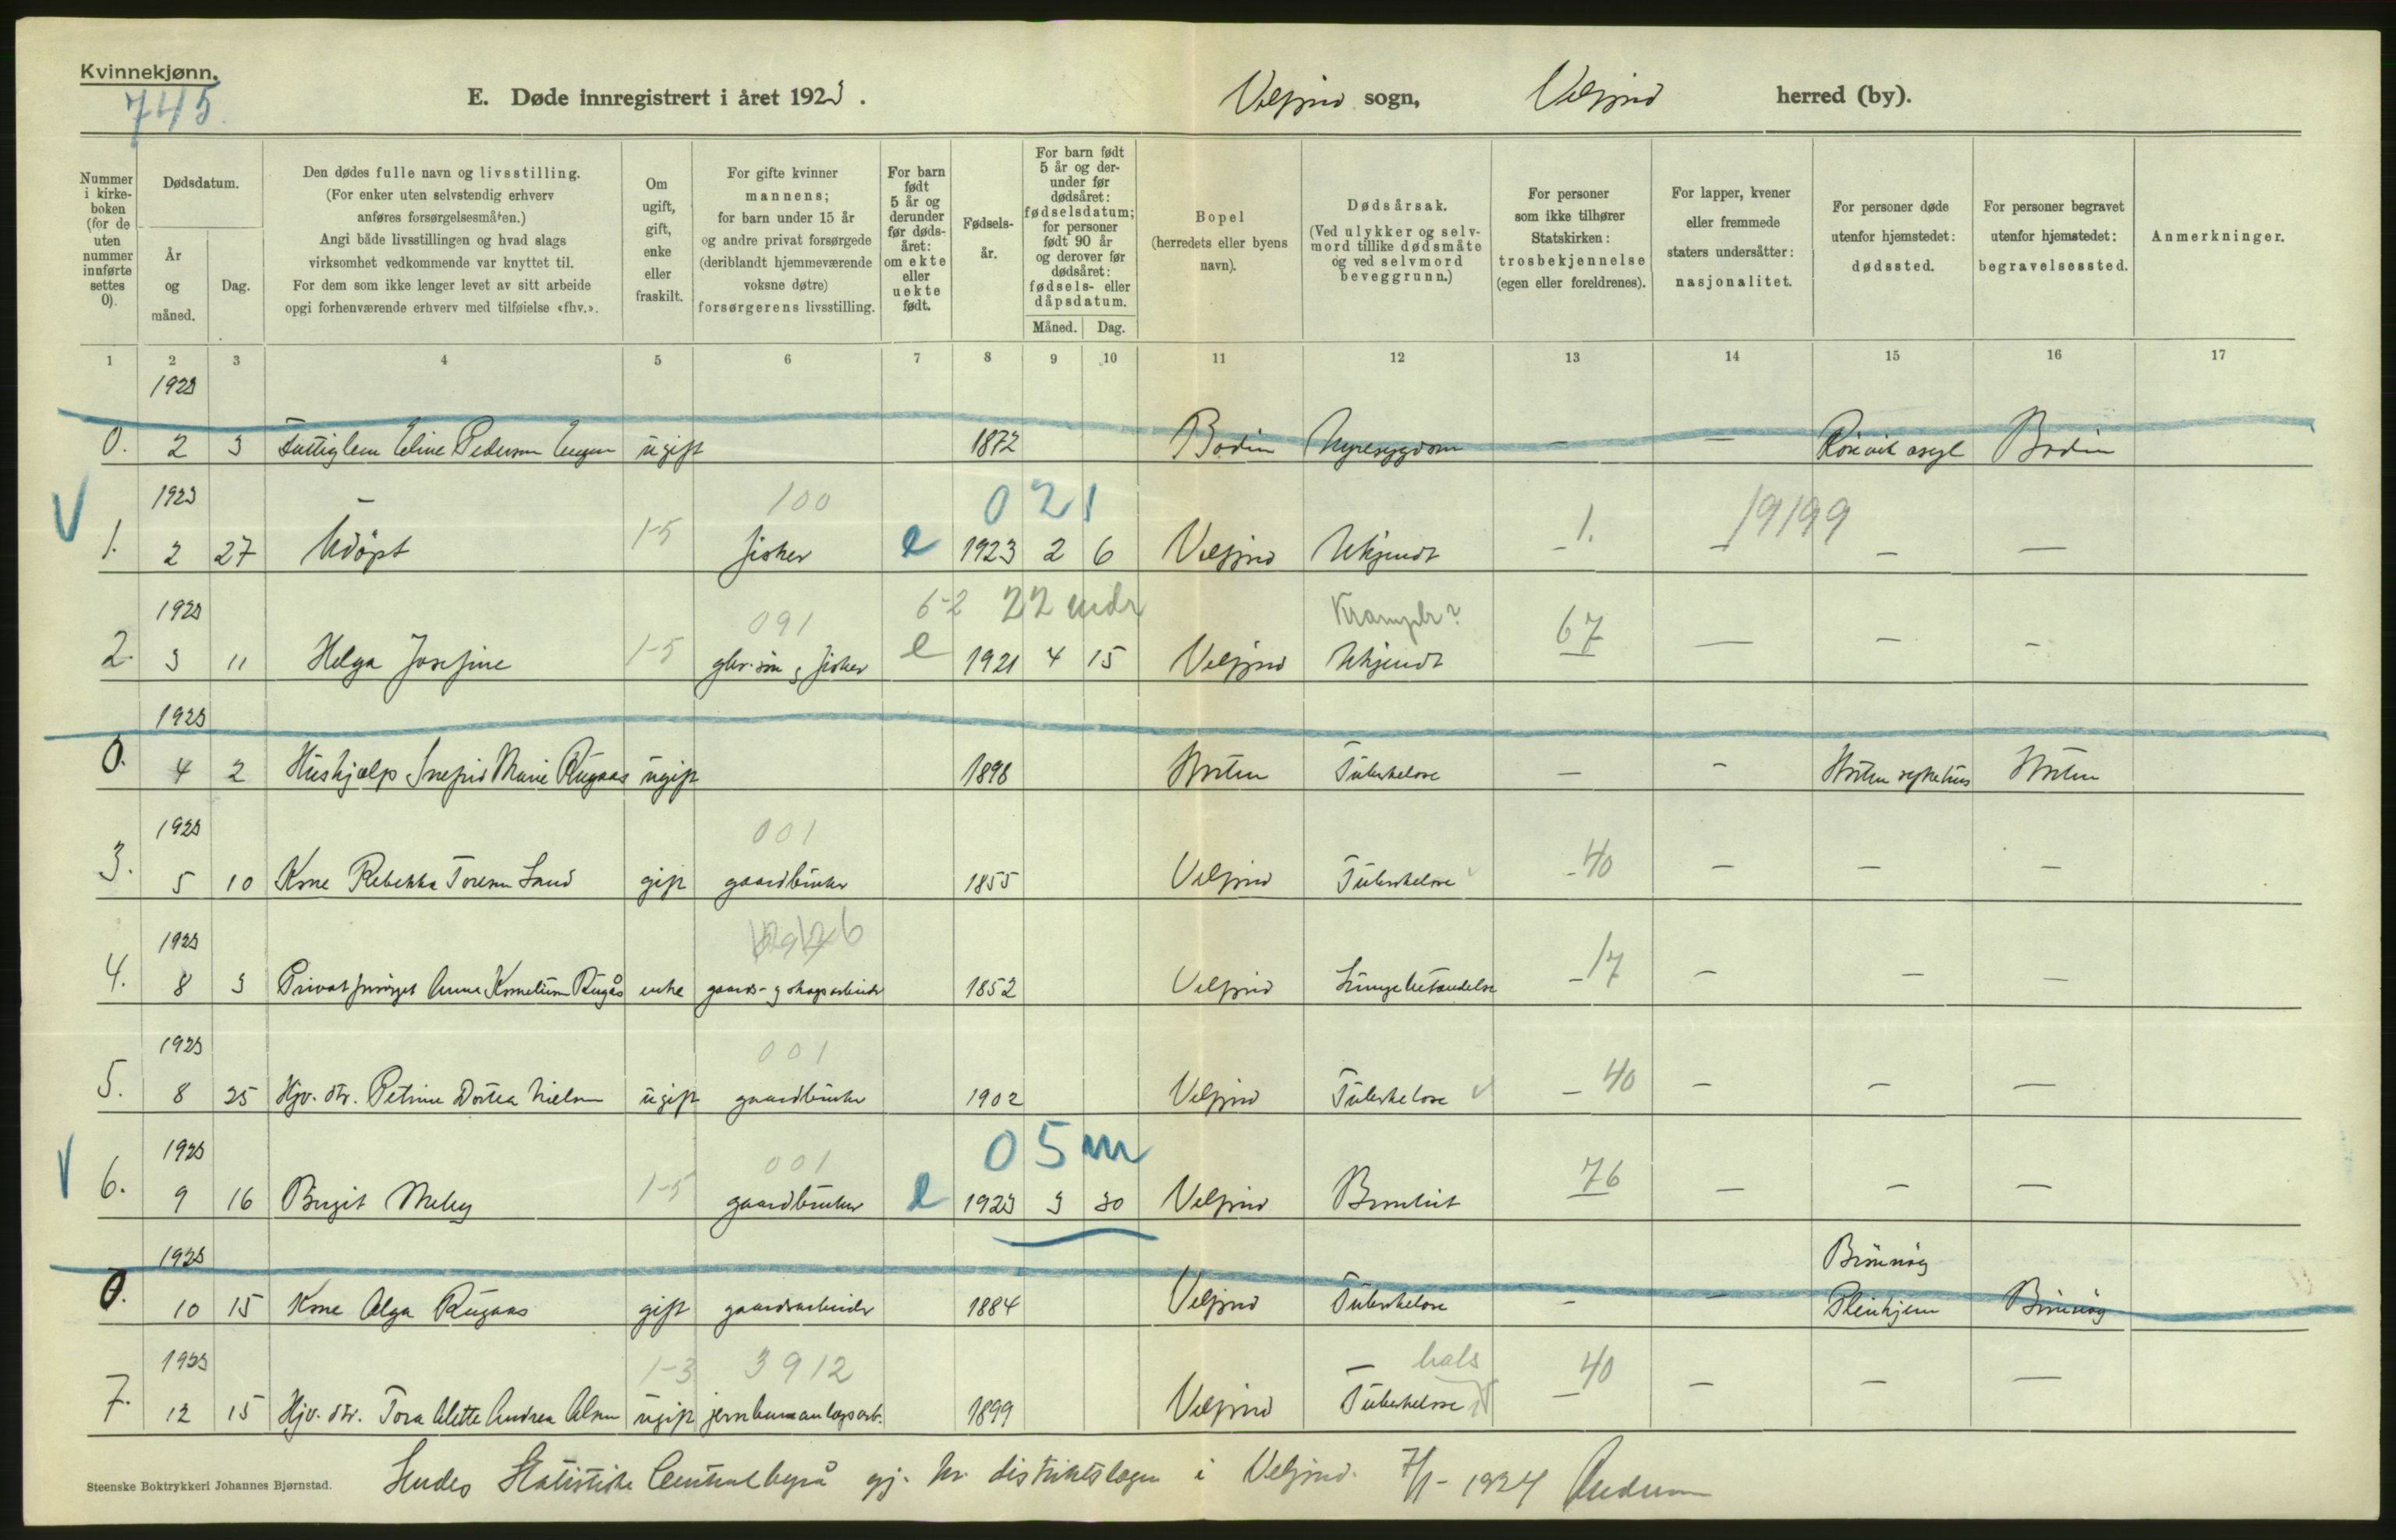 Kvinnekjønn.
745.
E. Døde innregistrert i året 1923.
Velfjord sogn, Velfjord herred (by).
Nummer i kirkeboken (for de uten nummer innførte settes 0).
Dødsdatum.
År og måned.
Dag.
Den dødes fulle navn og livsstilling.
(For enker uten selvstendig erhverv anføres forsørgelsesmåten.)
Angi både livsstillingen og hvad slags virksomhet vedkommende var knyttet til.
For dem som ikke lenger levet av sitt arbeide opgi forhenværende erhverv med tilføielse «fhv.».
Om ugift, gift, enke eller fraskilt.
For gifte kvinner mannens; for barn under 15 år og andre privat forsørgede (deriblandt hjemmeværende voksne døtre) forsørgerens livsstilling.
For barn født 5 år og derunder før dødsåret: om ekte eller uekte født.
Fødselsår.
For barn født 5 år og derunder før dødsåret: fødselsdatum; for personer født 90 år og derover før dødsåret: fødsels- eller dåpsdatum.
Måned. Dag.
Bopel (herredets eller byens navn).
Dødsårsak. (Ved ulykker og selvmord tillike dødsmåte og ved selvmord beveggrunn.)
For personer som ikke tilhører Statskirken: trosbekjennelse (egen eller foreldrenes).
For lapper, kvener eller fremmede staters undersåtter: nasjonalitet.
For personer døde utenfor hjemstedet: dødssted.
For personer begravet utenfor hjemstedet: begravelsessted.
Anmerkninger.
1 2 3 4 5 6 7 8 9 10 11 12 13 14 15 16 17
1923
0. 2 3 Fattiglem Eline Pedersen Engen ugift 1872 Bodin Nyresygdom – – Rösvik asyl Bodin
1923 – 100 021
1. 2 27 Udöpt 1-5 fisker e 1923 2 6 Velfjord Ukjendt – 1. – 19199 – –
1923 091 6-2 22 mdr Krampe?
2. 3 11 Helga Josefine 1-5 gbr. sön og fisker e 1921 4 15 Velfjord Ukjendt 67 – – –
1923
0. 4 2 Hushjælp Snefrid Marie Rugaas ugift 1898 Horten Tuberkelose – – Horten sykehus Horten
1923 001
3. 5 10 Kone Rebekka Toresen Sund gift gaardbruker 1855 Velfjord Tuberkelose – 40 – – –
1923
4. 8 3 Privat forsörget Anna Kornelius Rugås enke gaards- og skogsarbeider 1852 Velfjord Lungebetændelse – 17 – – –
1923 001
5. 8 25 Hjv. dtr. Petrine Dortea Nielsen ugift gaardbruker 1902 Velfjord Tuberkelose – 40 – – –
1923 001 05m
6. 9 16 Birgit Meley 1-5 gaardbruker e 1923 3 30 Velfjord Bronkit 76 – – –
1923 Brönnöy
0. 10 15 Kone Olga Rugaas gift gaardsarbeider 1884 Velfjord Tuberkelose – – Pleiehjem Brönnöy
1923 1-3 3912 hals
7. 12 15 Hjv. dtr. Tora Alette Andrea Olsen ugift jernbaneanlægsarb. 1899 Velfjord Tuberkelose – 40 – – –
Steenske Boktrykkeri Johannes Bjørnstad.
Sendes Statistiske Centralbyrå gj. hr. distriktslægen i Velfjord. 7/1- 1924